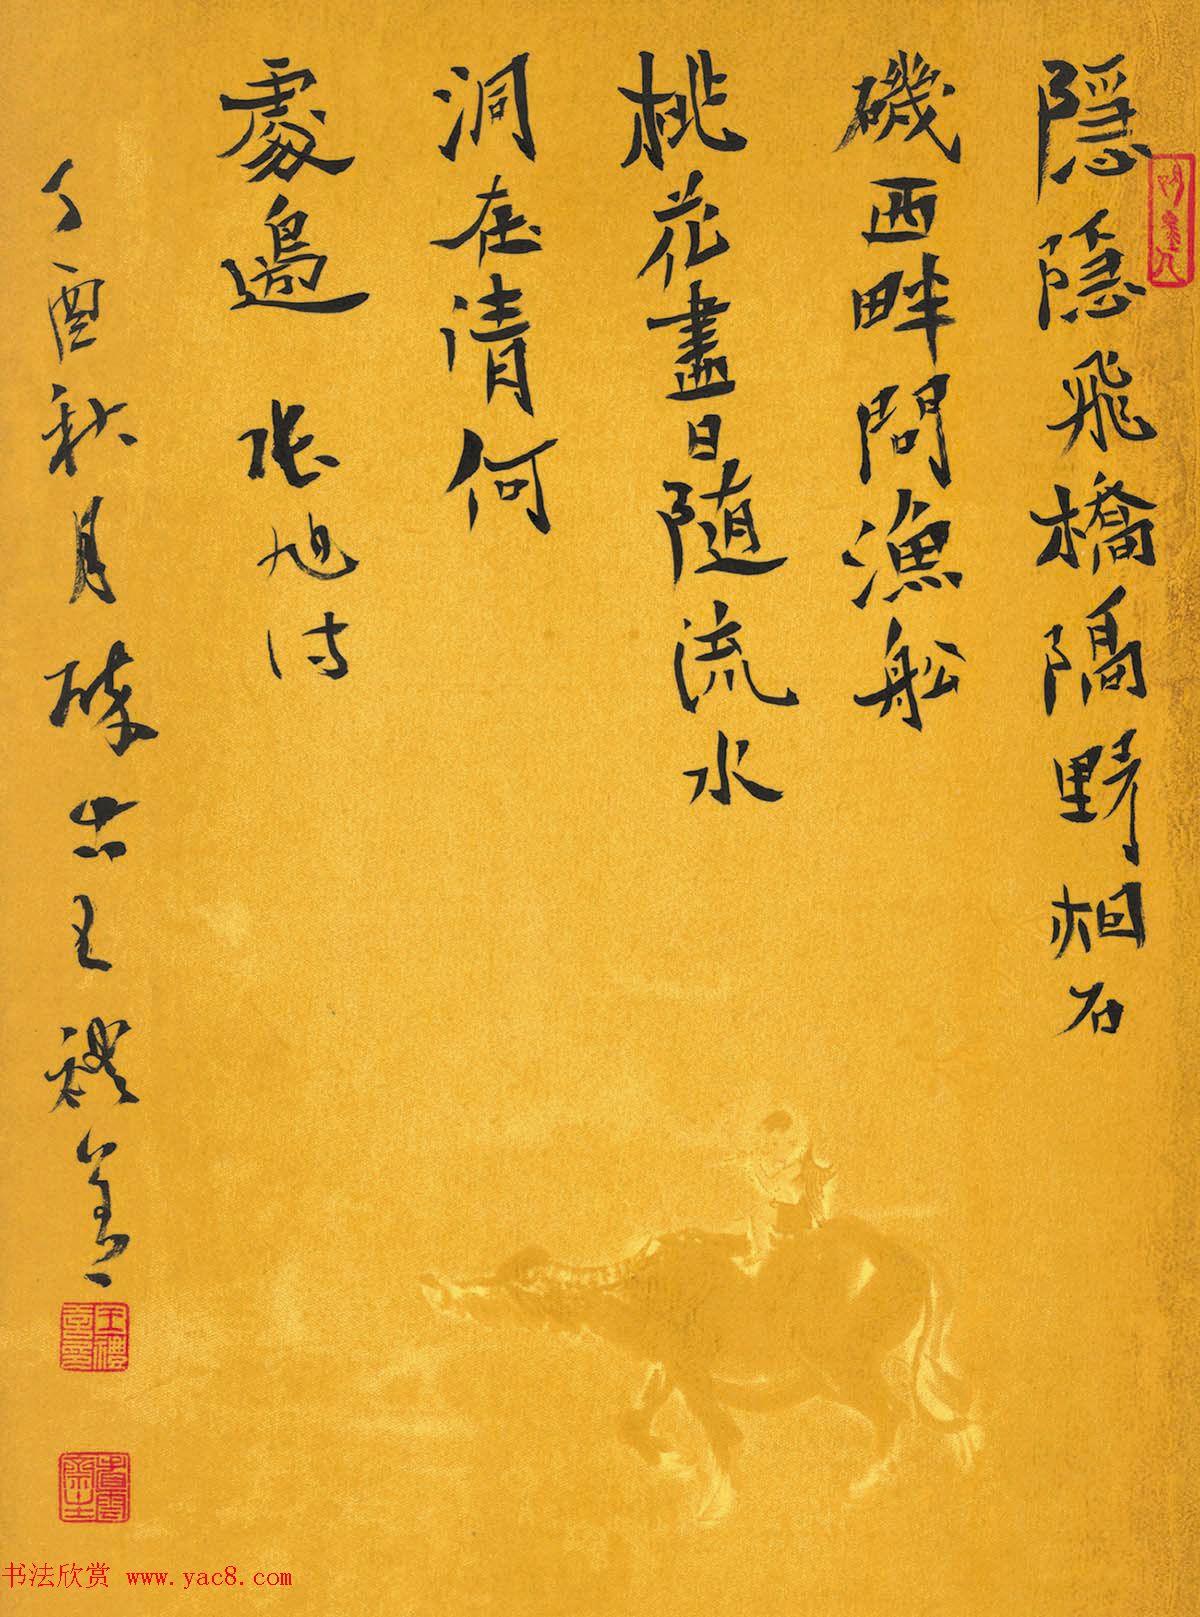 隱隱飛橋隔野烟石
磯西畔問漁舩
桃花盡日随流水
洞在清何
處邊 張旭詩
丁酉秋月 王禮
书法欣赏 www.yac8.com